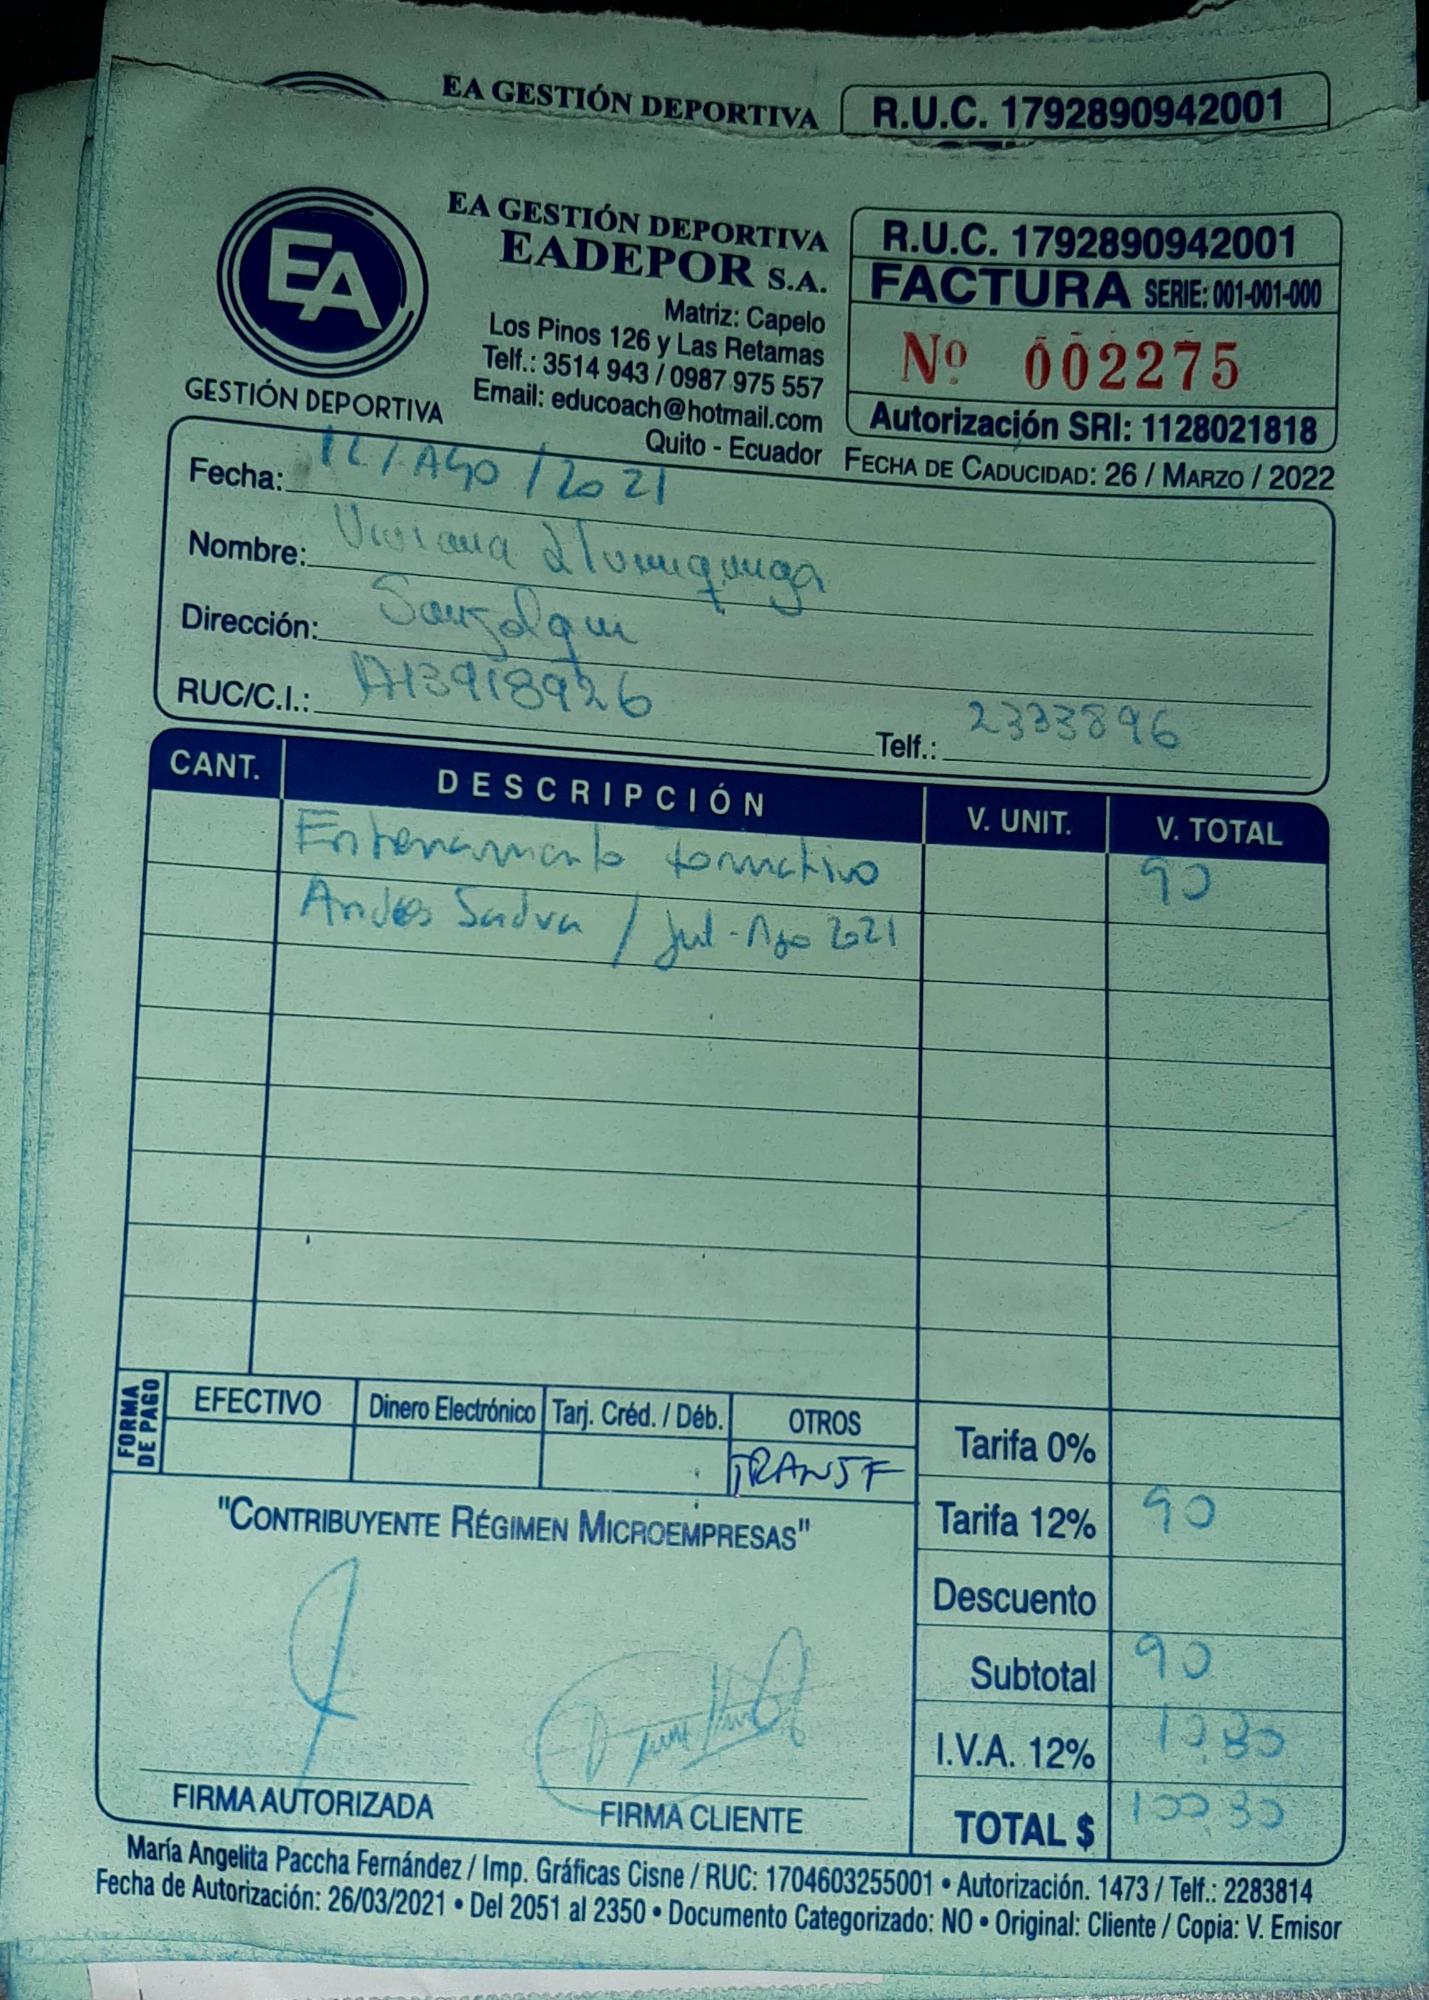 EA GESTIÓN DEPORTIVA
R.U.C. 1792890942001
EA
GESTIÓN DEPORTIVA
EA GESTIÓN DEPORTIVA
EADEPOR S.A.
Matriz: Capelo
Los Pinos 126 y Las Retamas
Telf.: 3514 943 / 0987 975 557
Email: educoach@hotmail.com
Quito - Ecuador
R.U.C. 1792890942001
FACTURA SERIE: 001-001-000
Nº 002275
Autorización SRI: 1128021818
FECHA DE CADUCIDAD: 26 / MARZO / 2022
Fecha: 12 / AGO / 2021
Nombre: Viviana
Dirección: Sangolqui
RUC/C.I.: 1713918926
Telf.: 2333896
CANT. DESCRIPCIÓN V. UNIT. V. TOTAL
Entrenamiento formativo 90
Andrés / Jul-Ago 2021
FORMA DE PAGO
EFECTIVO Dinero Electrónico Tarj. Créd. / Déb. OTROS
TRANSF
Tarifa 0%
Tarifa 12% 90
Descuento
Subtotal 90
I.V.A. 12% 10.80
TOTAL $ 100.80
"CONTRIBUYENTE RÉGIMEN MICROEMPRESAS"
FIRMA AUTORIZADA
FIRMA CLIENTE
María Angelita Paccha Fernández / Imp. Gráficas Cisne / RUC: 1704603255001 • Autorización. 1473 / Telf.: 2283814
Fecha de Autorización: 26/03/2021 • Del 2051 al 2350 • Documento Categorizado: NO • Original: Cliente / Copia: V. Emisor